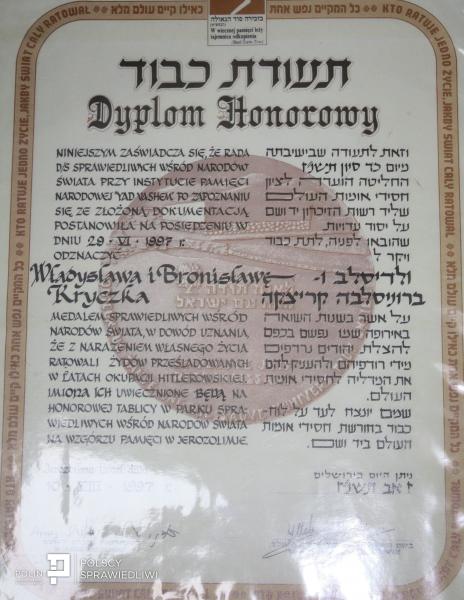 כל המקיים נפש אחת ❊ כאילו קיים עולם מלא
KTO RATUJE JEDNO ŻYCIE, JAKBY ŚWIAT CAŁY RATOWAŁ
בזכירה סוד הגאולה
W wiecznej pamięci leży
tajemnica odkupienia
תעודת כבוד
Dyplom Honorowy
NINIEJSZYM ZAŚWIADCZA SIĘ, ŻE RADA
D/S SPRAWIEDLIWYCH WŚRÓD NARODÓW
ŚWIATA PRZY INSTYTUCIE PAMIĘCI
NARODOWEJ YAD VASHEM PO ZAPOZNANIU
SIĘ ZE ZŁOŻONĄ DOKUMENTACJĄ
POSTANOWIŁA NA POSIEDZENIU W
DNIU 29·VI·1997 r.
ODZNACZYĆ
Władysława i Bronisławę
Kryczka
MEDALEM SPRAWIEDLIWYCH WŚRÓD
NARODÓW ŚWIATA, W DOWÓD UZNANIA,
ŻE Z NARAŻENIEM WŁASNEGO ŻYCIA
RATOWALI ŻYDÓW PRZEŚLADOWANYCH
W LATACH OKUPACJI HITLEROWSKIEJ.
IMIONA ICH UWIECZNIONE BĘDĄ NA
HONOROWEJ TABLICY W PARKU SPRA-
WIEDLIWYCH WŚRÓD NARODÓW ŚWIATA
NA WZGÓRZU PAMIĘCI W JEROZOLIMIE.
וזאת לתעודה שבישיבתה
מיום כד סיון תשנ"ז
החליטה הועדה לציון
חסידי אומות העולם
שליד רשות הזיכרון יד ושם
על יסוד עדויות
שהובאו לפניה, לתת כבוד
ויקר ל
ולדיסלב ו-
ברוניסלבה קריצקה
על אשר בשנות השואה
באירופה שמו נפשם בכפם
להצלת יהודים נרדפים
מידי רודפיהם ולהעניק להם
את המדליה לחסידי אומות
העולם.
שמם יונצח לעד על לוח-
כבוד בחורשת חסידי אומות
העולם ביד ושם.
10·VIII·1997 r.
ניתן היום בירושלים
ז אב תשנ"ז
POLIN
POLSCY
SPRAWIEDLIWI